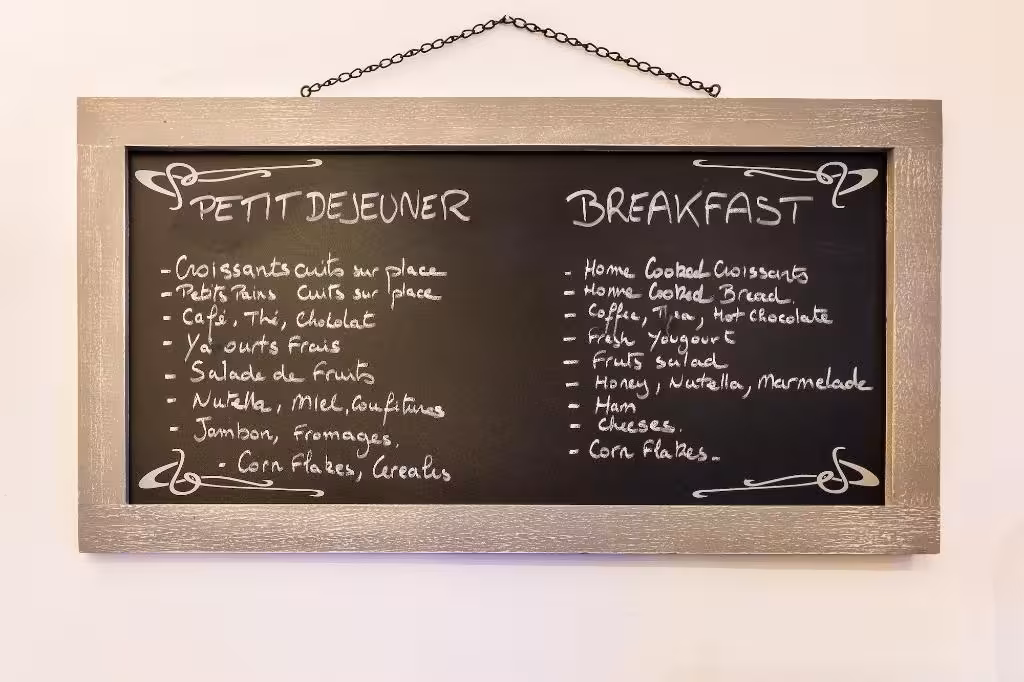 PETIT DEJEUNER
- Croissants cuits sur place
- Petits Pains cuits sur place
- Café, Thé, Chocolat
- Ya ourts Frais
- Salade de Fruits
- Nutella, Miel, Confitures
- Jambon, Fromages.
- Corn Flakes, Cereales
BREAKFAST
- Home Cooked Croissants
- Home Cooked Bread.
- Coffee, Tea, Hot Chocolate
- Fresh Yougourt
- Fruits salad
- Honey, Nutella, Marmelade
- Ham
- Cheeses.
- Corn Flakes -